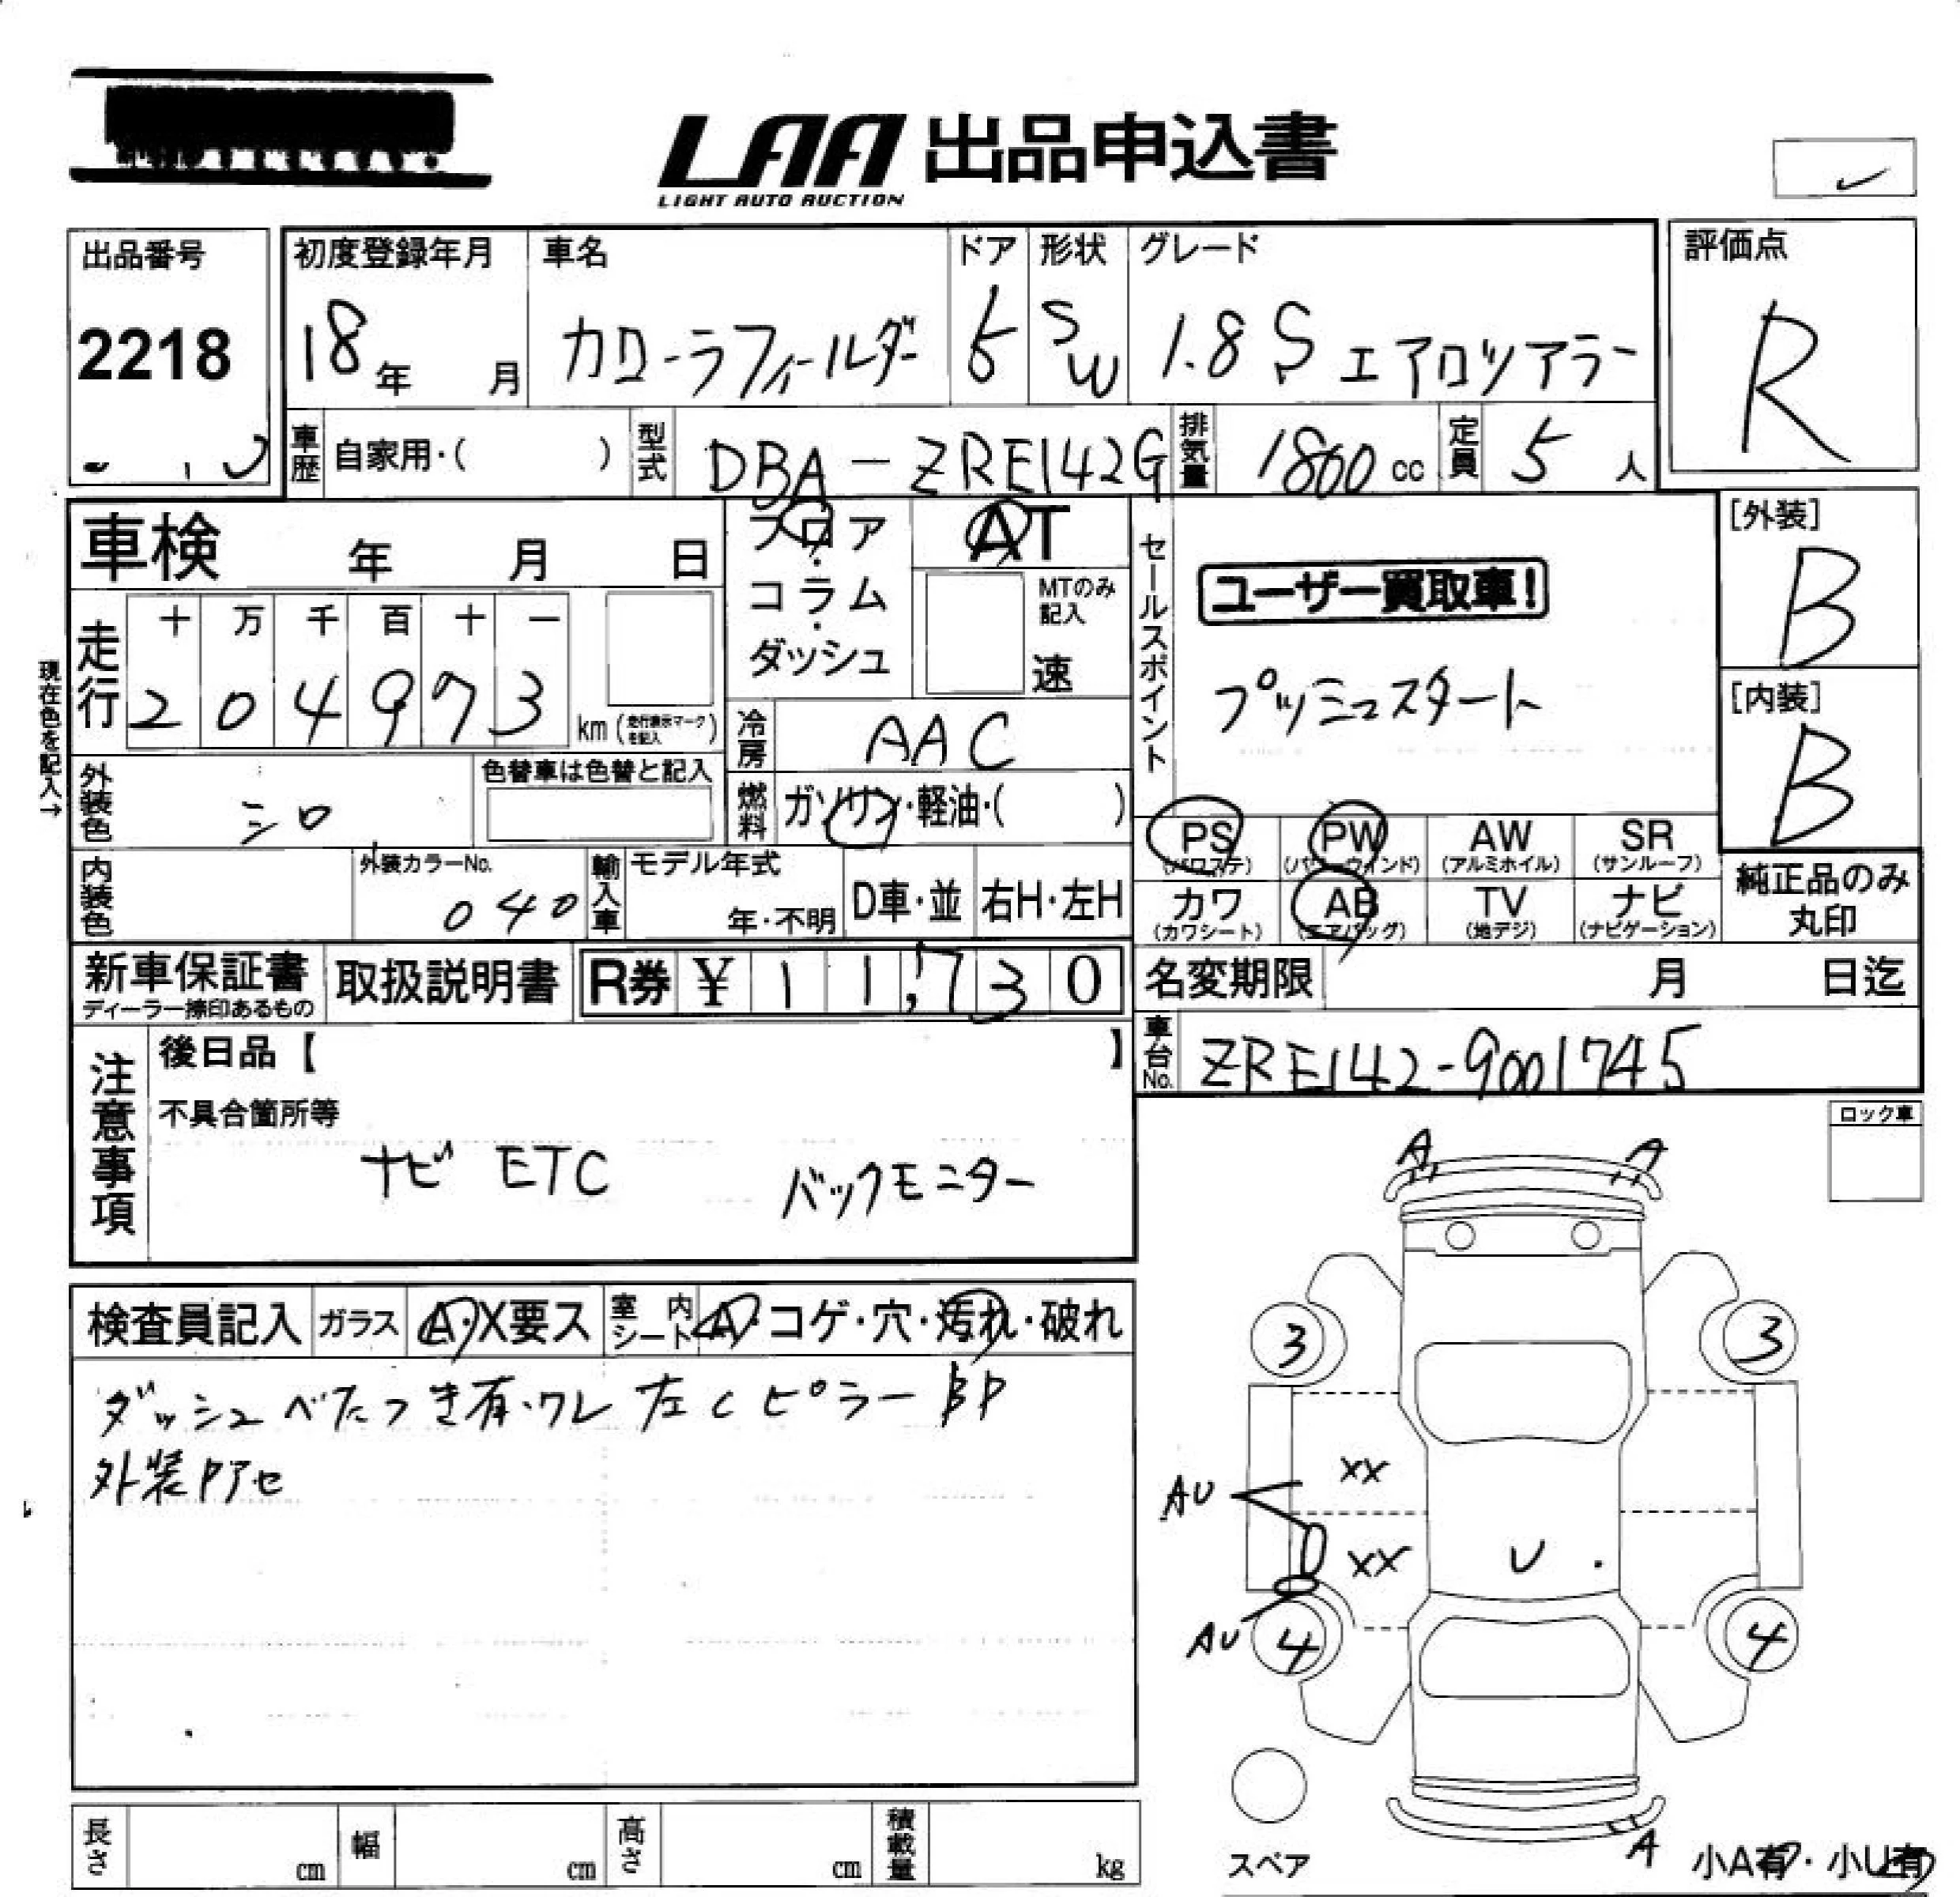 LAA 出品申込書
LIGHT AUTO AUCTION
出品番号
2218
初度登録年月
18年 月
車名
カローラフィールダー
ドア
5
形状
SW
グレード
1.8 S エアロツアラー
評価点
R
車歴 自家用・( )
型式 DBA-ZRE142G
排気量 1800 cc
定員 5 人
車検 年 月 日
現在色を記入→
走行 十 万 千 百 十 一
2 0 4 9 7 3 km (走行表示マークを記入)
フロア・コラム・ダッシュ
AT
MTのみ記入
速
冷房 AAC
燃料 ガソリン・軽油・( )
外装色 シロ
色替車は色替と記入
内装色
外装カラーNo. 040
輸入車 モデル年式 年・不明 D車・並 右H・左H
セールスポイント
ユーザー買取車!
プッシュスタート
[外装]
B
[内装]
B
PS (パワステ) PW (パワーウインド) AW (アルミホイル) SR (サンルーフ)
カワ (カワシート) AB (エアバッグ) TV (地デジ) ナビ (ナビゲーション)
純正品のみ丸印
新車保証書
ディーラー捺印あるもの
取扱説明書
R券 ¥ 1 1,7 3 0
名変期限 月 日迄
車台No. ZRE142-9001745
注意事項
後日品【 】
不具合箇所等
ナビ ETC バックモニター
ロック車
検査員記入 ガラス A・X要ス 室内シート A・コゲ・穴・汚れ・破れ
ダッシュベたつき有・ワレ 左Cピラー BP
外装Pアセ
A A
3 3
XX
AU
XX U
AU 4 4
スペア
A
小A有・小U有
長さ cm 幅 cm 高さ cm 積載量 kg